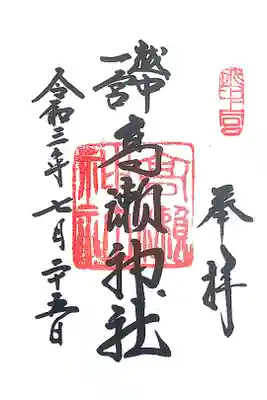 奉拝
越中
一宮
高瀬神社
令和三年七月二十五日
越中一宮
高瀬神社